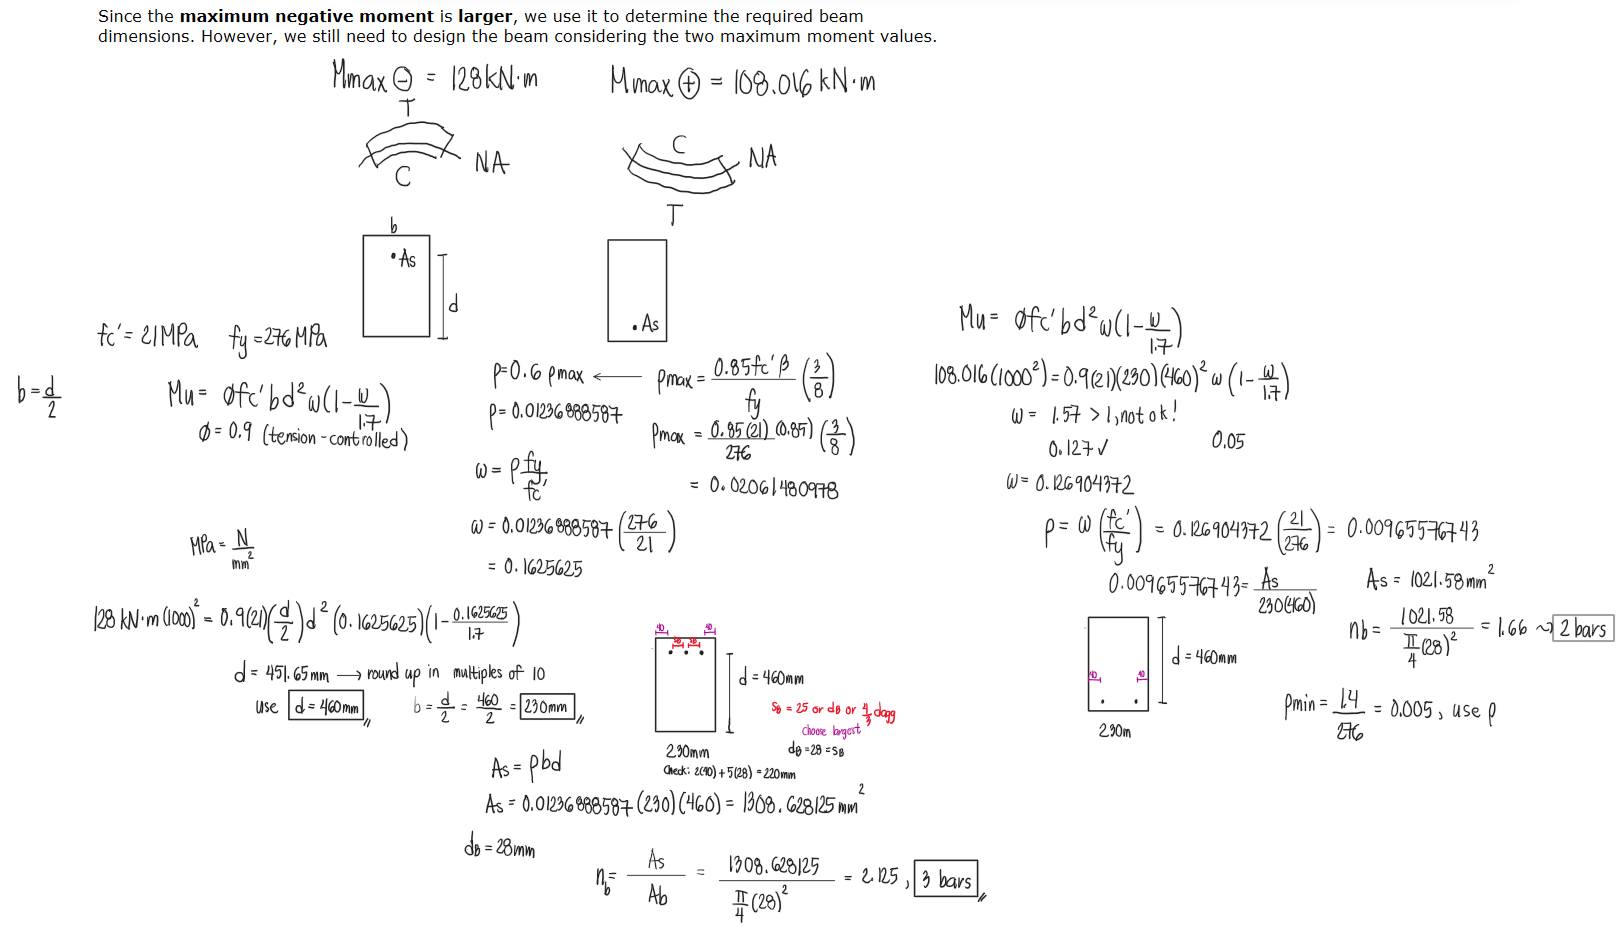 Since the maximum negative moment is larger, we use it to determine the required beam
dimensions. However, we still need to design the beam considering the two maximum moment values.
Mmax ⊖ = 128 kN·m
Mmax ⊕ = 108.016 kN·m
T
C
NA
C
NA
T
b
As
d
As
fc' = 21 MPa fy = 276 MPa
b = d/2
Mu = Øfc'bd²ω(1-ω/1.7)
Ø = 0.9 (tension-controlled)
ρ = 0.6 ρmax ← ρmax = 0.85fc'β/fy (3/8)
ρ = 0.01236888587
ρmax = 0.85(21)(0.85)/276 (3/8)
= 0.02061480978
ω = ρ fy/fc'
ω = 0.01236888587 (276/21)
= 0.1625625
MPa = N/mm²
128 kN·m (1000)² = 0.9(21)(d/2)d²(0.1625625)(1-0.1625625/1.7)
d = 451.65mm → round up in multiples of 10
use d = 460mm
b = d/2 = 460/2 = 230mm
40 40
28 28
d = 460mm
230mm
sB = 25 or dB or 4/3 dagg
choose largest
dB = 28 = sB
Check: 2(40) + 5(28) = 220mm
As = ρbd
As = 0.01236888587 (230)(460) = 1308.628125 mm²
dB = 28mm
nb = As/Ab = 1308.628125/(π/4 (28)²) = 2.125, 3 bars
Mu = Øfc'bd²ω(1-ω/1.7)
108.016(1000²) = 0.9(21)(230)(460)²ω(1-ω/1.7)
ω = 1.57 > 1, not ok!
0.127 ✓
0.05
ω = 0.126904372
ρ = ω (fc'/fy) = 0.126904372 (21/276) = 0.00965576743
0.00965576743 = As/230(460)
As = 1021.58mm²
nb = 1021.58/(π/4 (28)²) = 1.66 ~ 2 bars
40 40
d = 460mm
230m
ρmin = 1.4/276 = 0.005, use ρ